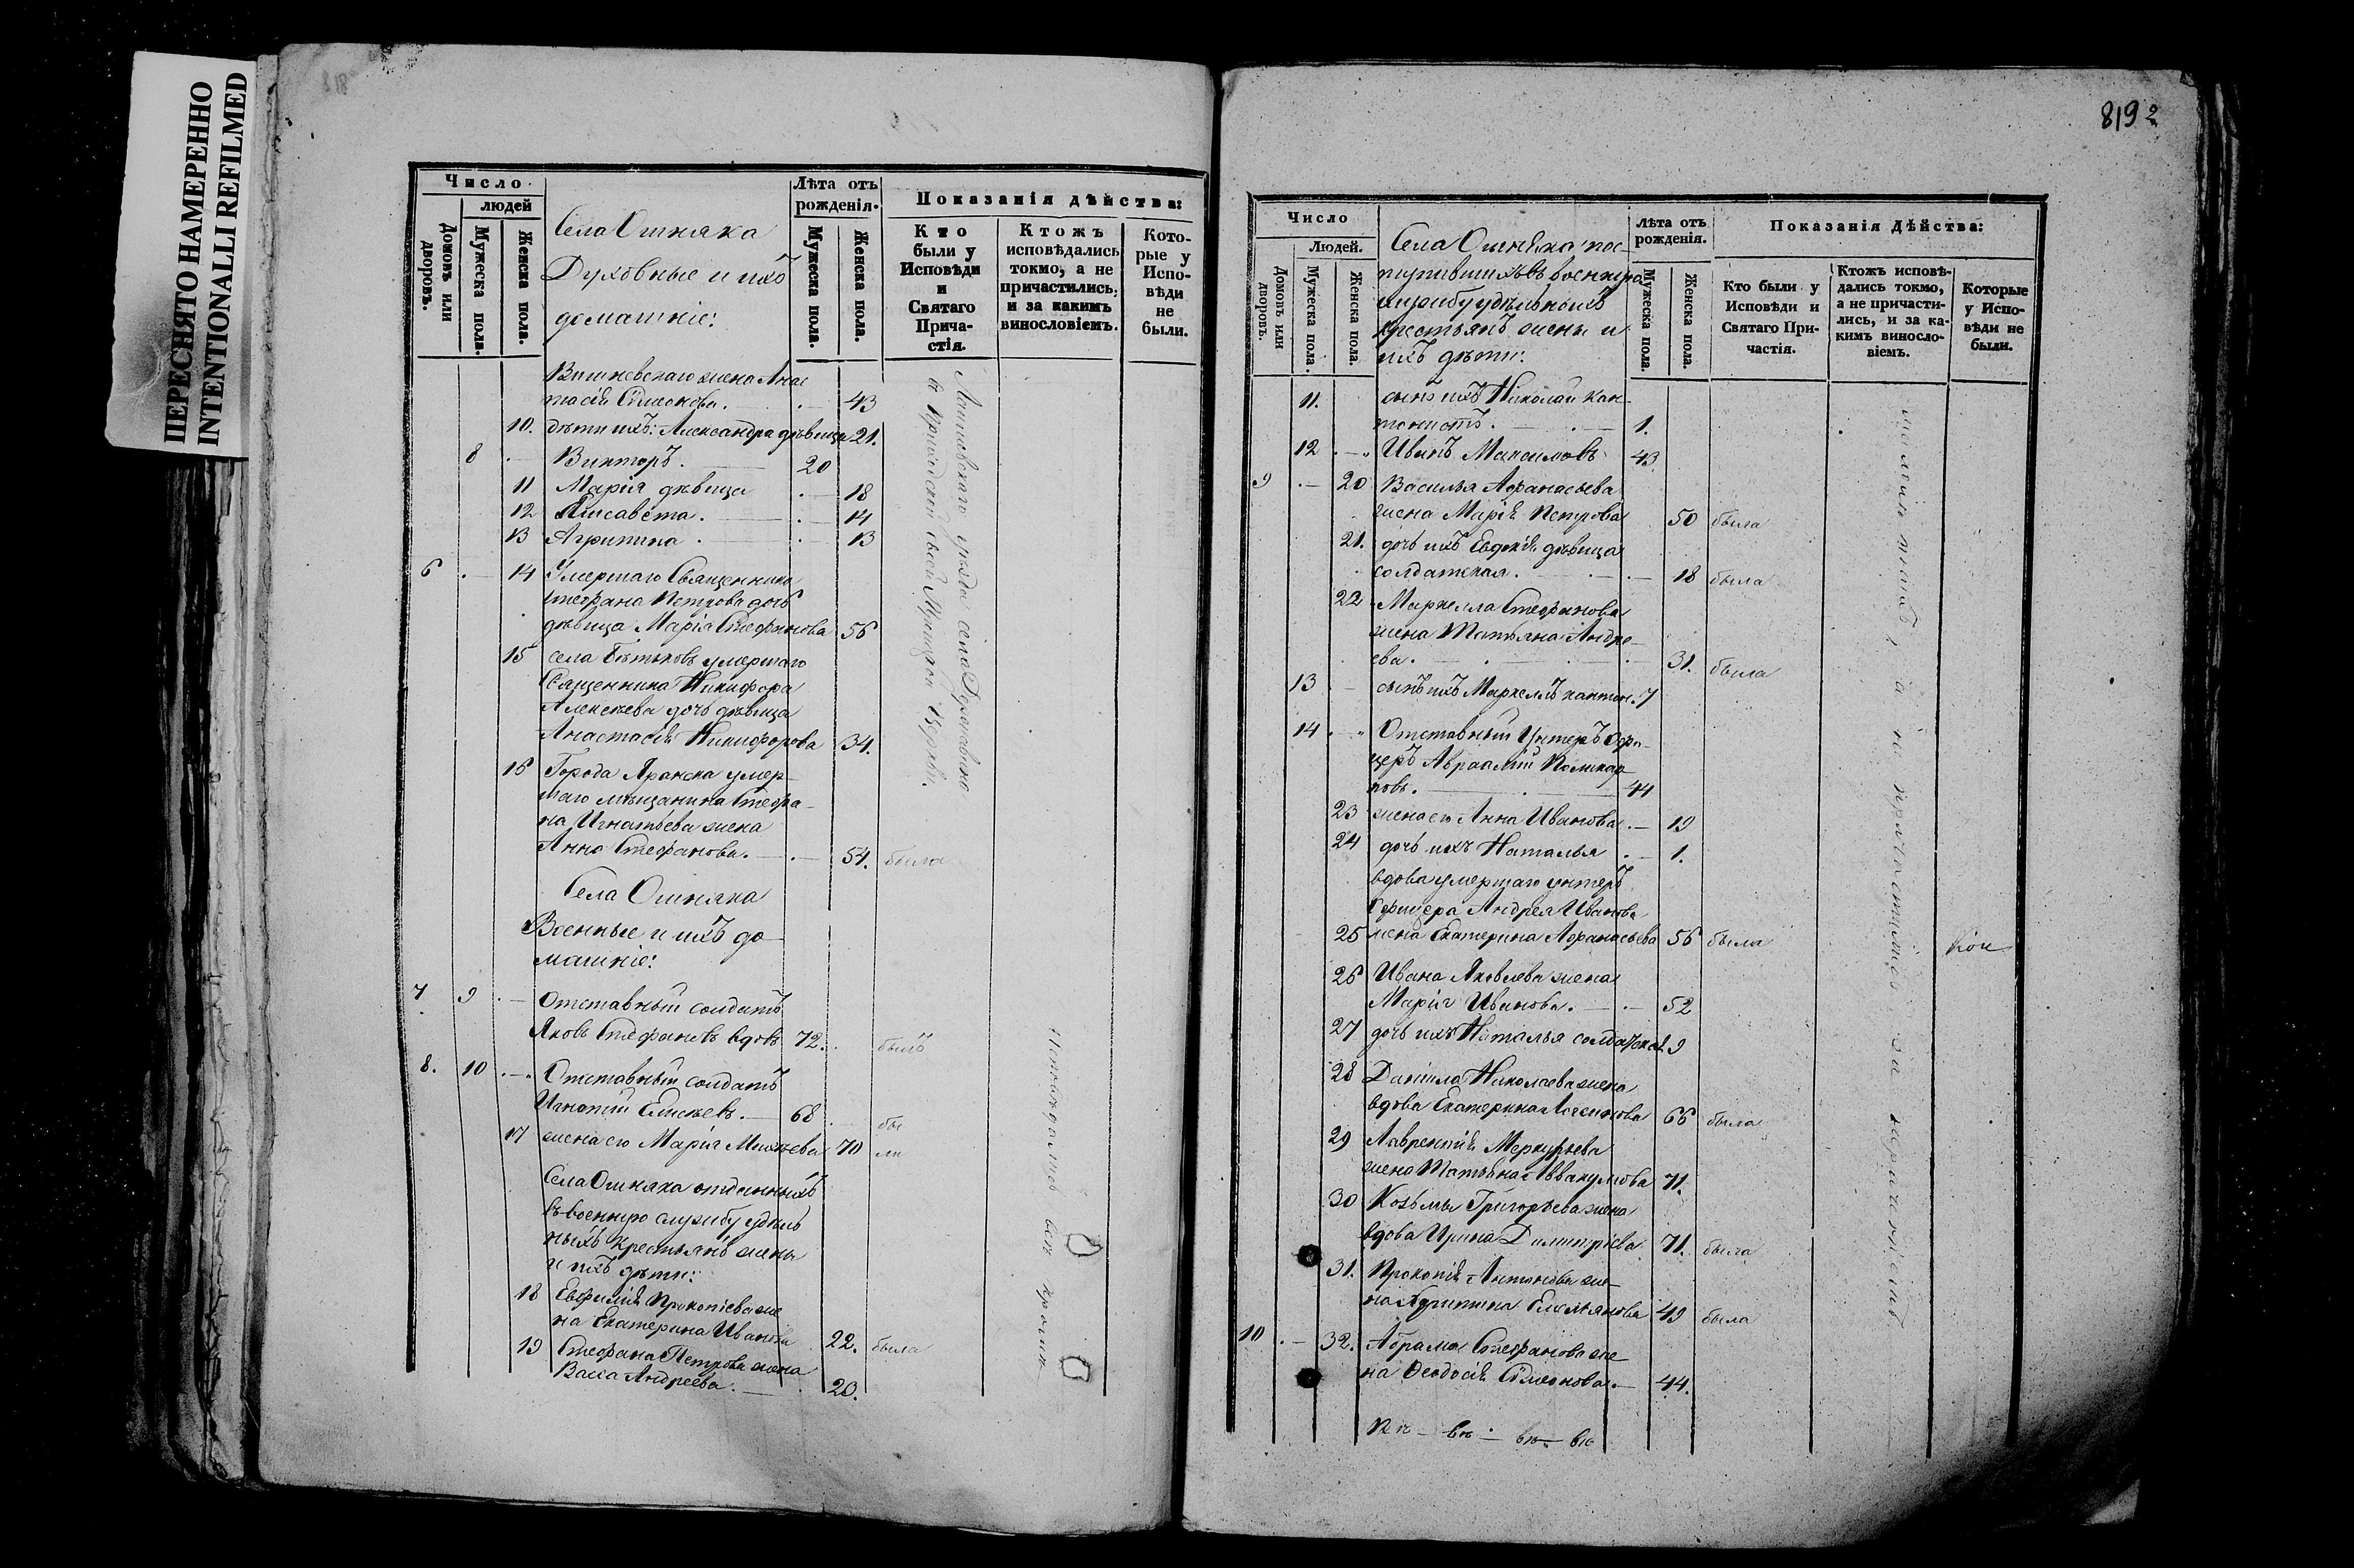 ПЕРЕСНЯТО НАМЕРЕННО
INTENTIONALLI REFILMED
818
Число
людей
Домовъ или дворовъ.
Мужеска пола.
Женска пола.
Села Ошняка
Духовные и ихъ
домашніе:
Лѣта отъ рожденія.
Мужеска пола.
Женска пола.
Показанія дѣйства:
Кто были у Исповѣди и Святаго Прича-стія.
Ктожъ исповѣдались токмо, а не причастились, и за какимъ винословіемъ.
Кото-рые у Испо-вѣди не были.
Вишневскаго жена Анас
тасія Симеонова. 43
10. дѣти ихъ: Александра дѣвица 21.
8 Викторъ. 20
11 Марія дѣвица 18
12 Елисавета. 14
13 Агрипина 13
6 14 Умершаго Священника
Стефана Петрова дочь
дѣвица Марія Стефанова 56
15 села умершаго
Священника Никифора
Алексѣева дочь дѣвица
Анастасія Никифорова 34.
16 Города Яранска умер-
шаго мѣщанина Стефа-
на Игнатьева жена
Анна Стефанова. 54. была
Села Ошняка
Военные и ихъ до-
машніе:
7 9 Отставный солдатъ
Яковъ Стефановъ вдовъ 72. былъ
8. 10 Отставный солдатъ
Игнатій Елисѣевъ. 68 бы
17 жена его Марія Михѣева 70 ли
Села Ошняка отданныхъ
въ военную службу удѣль
ныхъ крестьянъ жены
и ихъ дѣти:
18 Евфимія Прокопіева же
на Екатерина Иванова 22. была
19 Стефана Петрова жена
Васса Андреева. 23.
уѣзда села
въ приходской своей церкви.
Исповѣдались всѣ
819 2
Число
Людей.
Домовъ или дворовъ.
Мужеска пола.
Женска пола.
Села Ошняка пос-
тупившихъ въ военную
службу удѣльныхъ
крестьянъ жены и
ихъ дѣти:
Лѣта отъ рожденія.
Мужеска пола.
Женска пола.
Показанія Дѣйства:
Кто были у Исповѣди и Святаго При-частія.
Ктожъ исповѣ-дались токмо, а не причасти-лись, и за ка-кимъ виносло-віемъ.
Которые у Испо-вѣди не были.
11. сынъ ихъ Николай кан-
тонистъ. 1.
12 Иванъ Максимовъ 43
9 20 Василья Афанасьева
жена Марія Петрова 50 была
21. дочь ихъ Евдокія дѣвица
солдатская. 18 была
22 Маркелла Стефанова
жена Татьяна Андре-
ева. 31. была
13 сынъ ихъ Маркеллъ кантон. 7
14 Отставный Унтеръ Офи-
церъ Авраамій Поликар
повъ. 44
23 жена его Анна Иванова 19
24 дочь ихъ Наталья 1.
вдова умершаго унтеръ
Офицера Андрея Иванова
25 жена Екатерина Афанасьева 56 была
26 Ивана Яковлева жена
Марія Иванова. 52
27 дочь ихъ Наталья солдатская 19
28 Даніила Николаева жена
вдова Екатерина 66 была
29 Лаврентія Меркурьева
жена Татьяна Аввакумова 71.
30 Козьмы Григорьева жена
вдова Ирина Димитріева 71. была
31. Прокопія Антонова же-
на Агрипина Емельянова 49 была
10 32. Абрама Стефанова же-
на Ѳеодосія Симеонова. 44.
а не причастились за